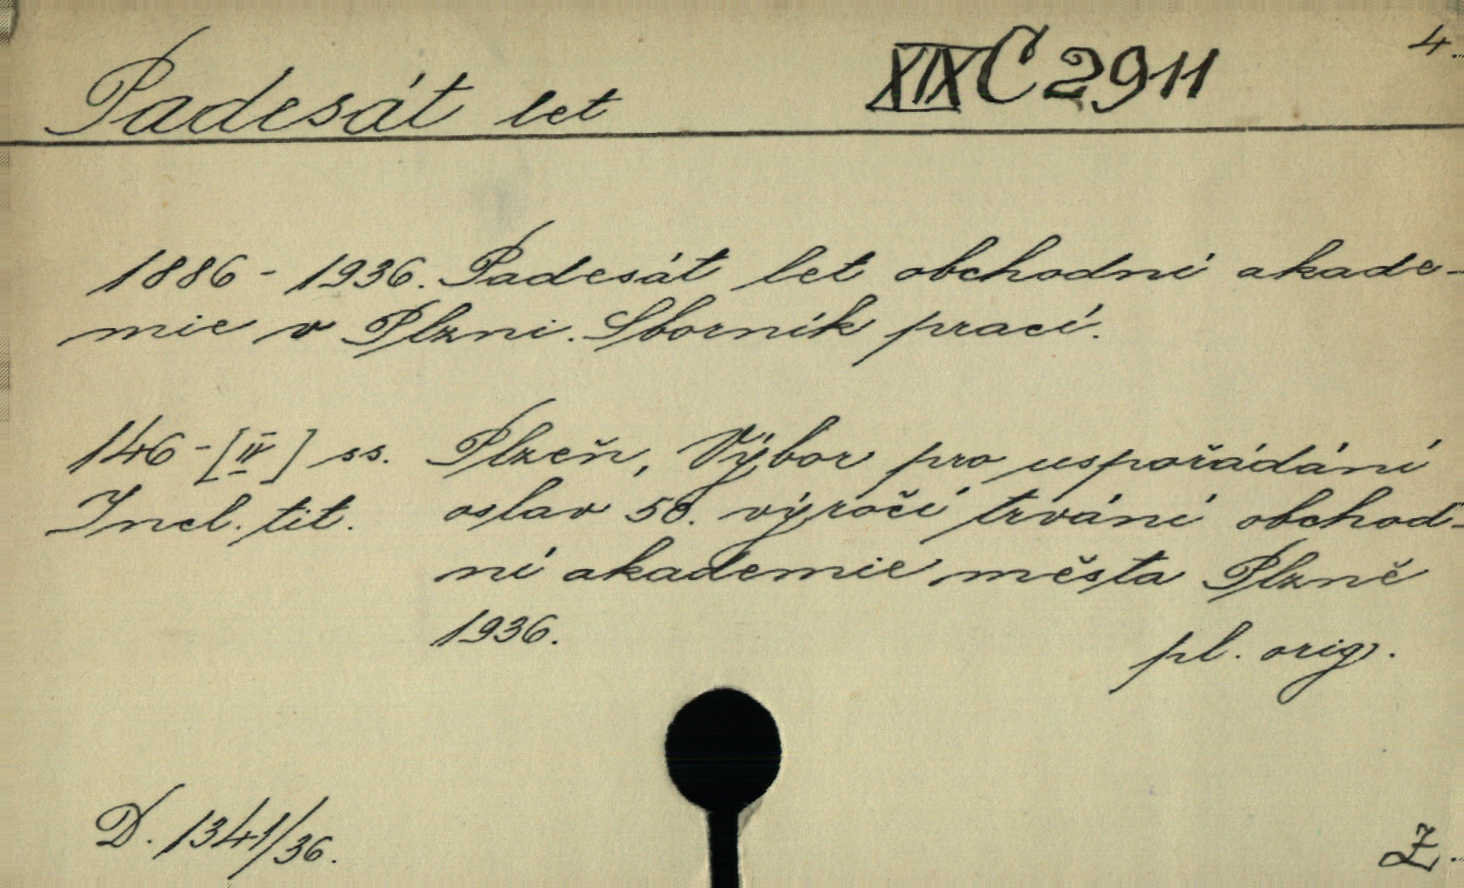 4.
Padesát let XIX C 2911
1886 - 1936. Padesát let obchodní akade-
mie v Plzni. Sborník prací.
146 - [IV] ss. Plzeň, Výbor pro uspořádání
Incl. tit. oslav 50. výročí trvání obchod-
ní akademie města Plzně
1936.
pl. orig.
D. 1341/36.
Z.